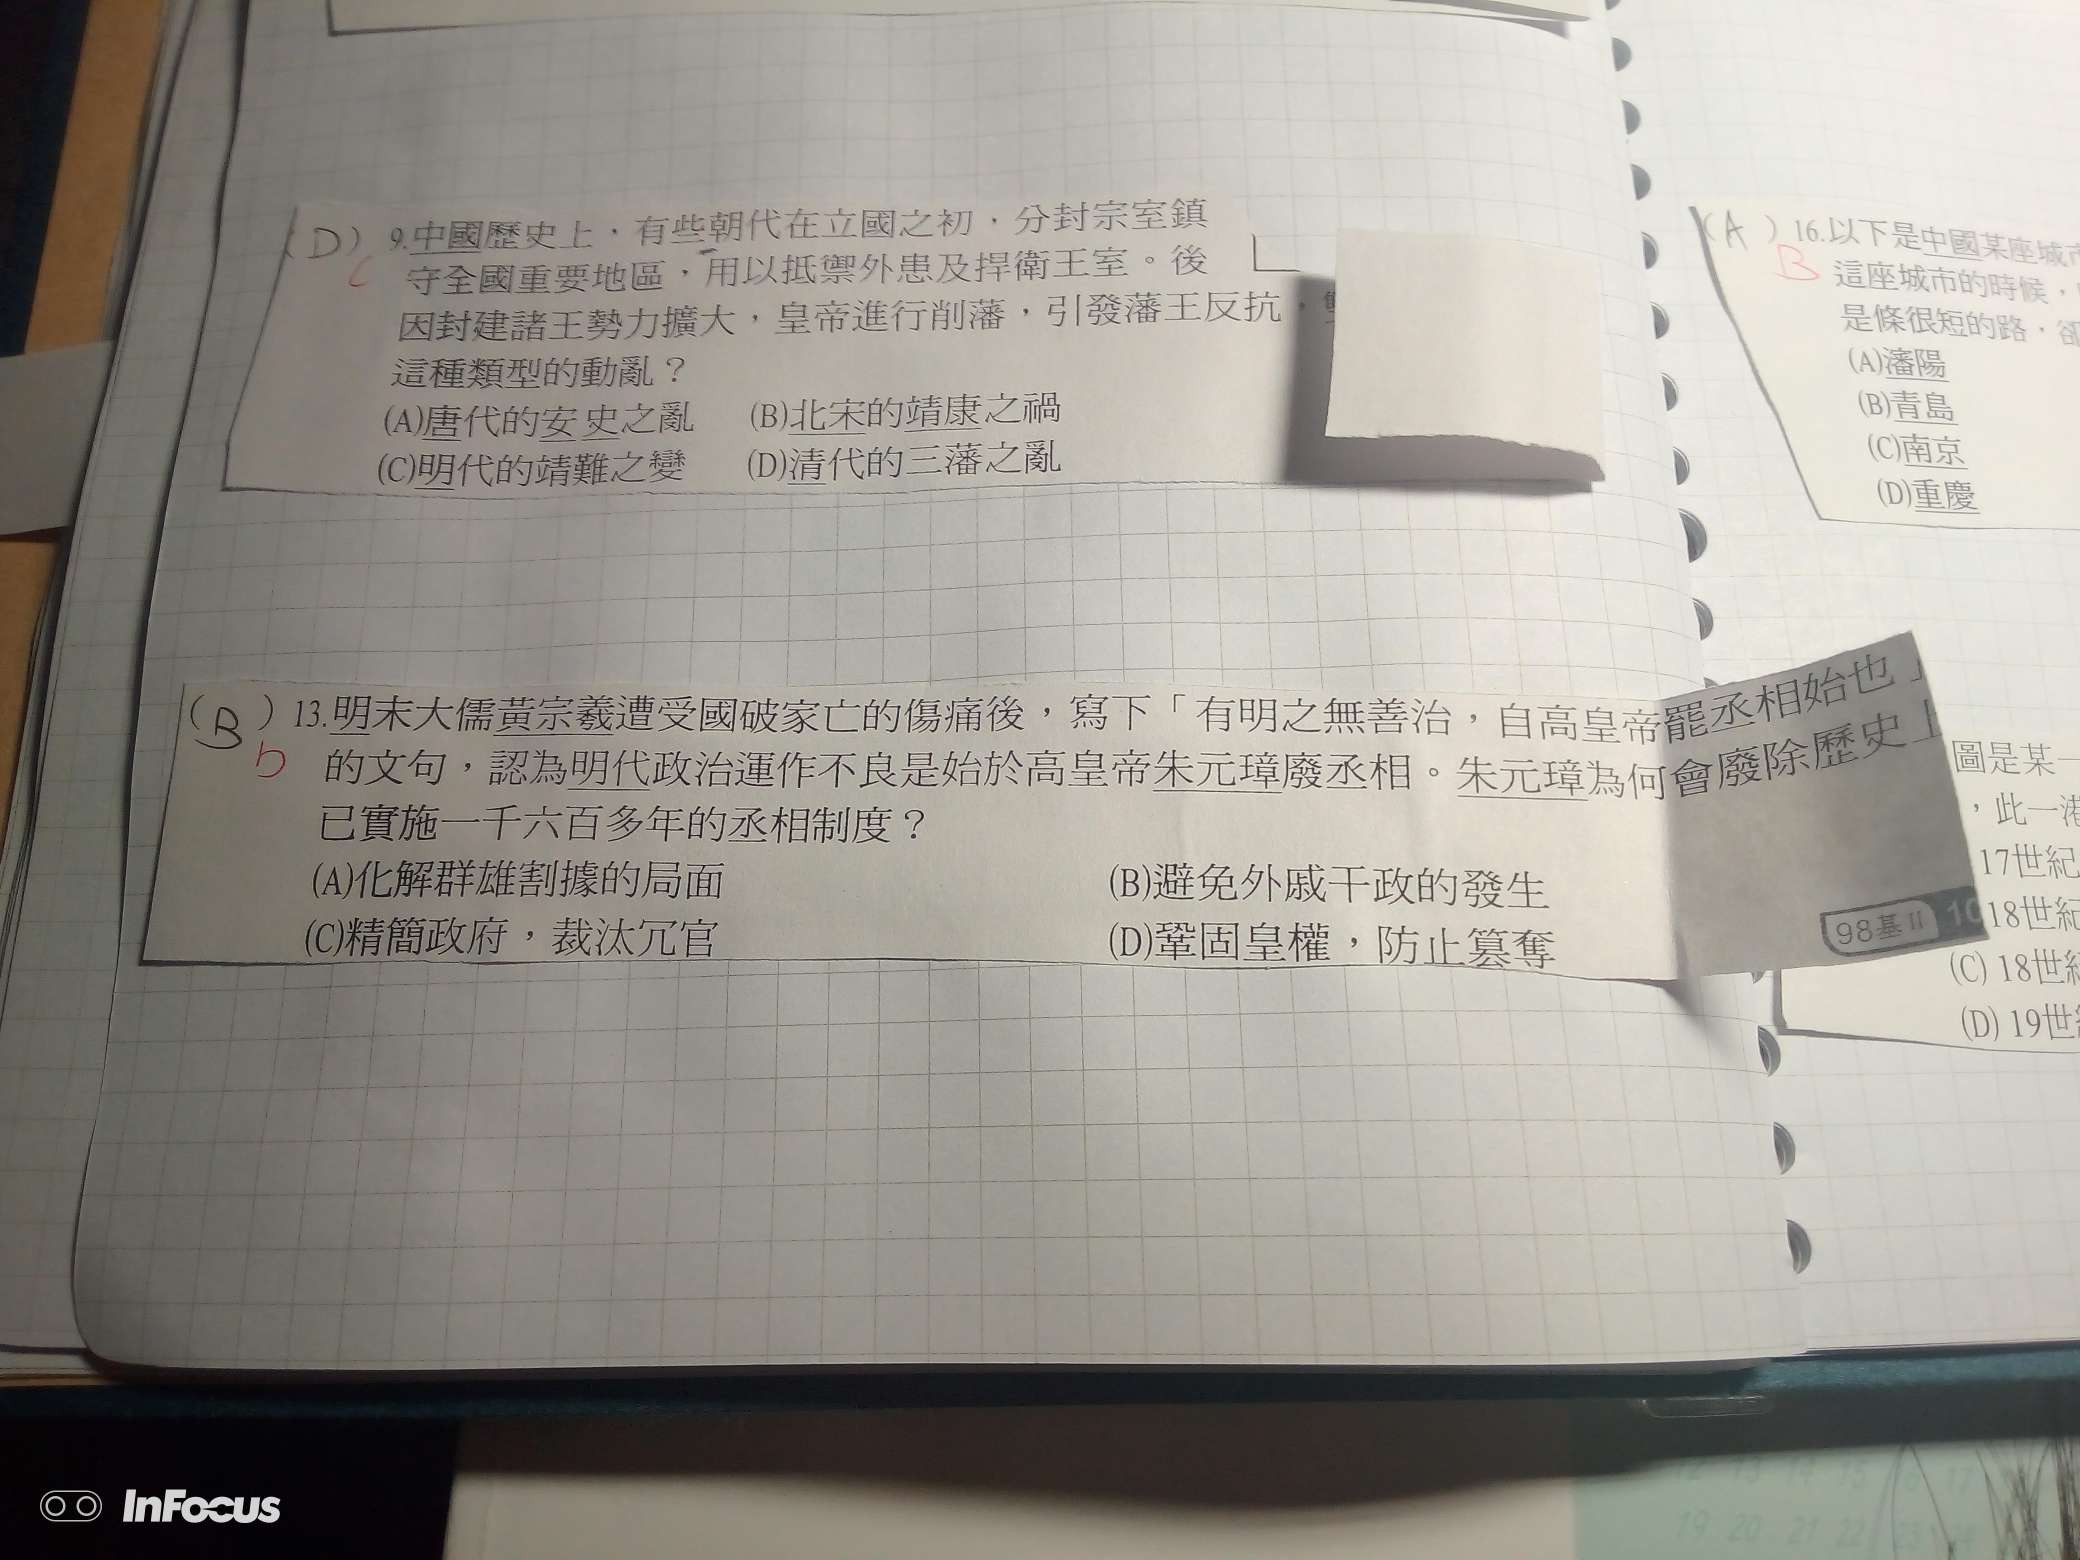 (D) 9.中國歷史上，有些朝代在立國之初，分封宗室鎮
C 守全國重要地區，用以抵禦外患及捍衛王室。後
因封建諸王勢力擴大，皇帝進行削藩，引發藩王反抗，
這種類型的動亂？
(A)唐代的安史之亂 (B)北宋的靖康之禍
(C)明代的靖難之變 (D)清代的三藩之亂
(B) 13.明末大儒黃宗羲遭受國破家亡的傷痛後，寫下「有明之無善治，自高皇帝罷丞相始也」
D 的文句，認為明代政治運作不良是始於高皇帝朱元璋廢丞相。朱元璋為何會廢除歷史上
已實施一千六百多年的丞相制度？
(A)化解群雄割據的局面 (B)避免外戚干政的發生
(C)精簡政府，裁汰冗官 (D)鞏固皇權，防止篡奪
98基II 10
(A) 16.以下是中國某座城市
B 這座城市的時候，
是條很短的路，卻
(A)瀋陽
(B)青島
(C)南京
(D)重慶
圖是某一
，此一港
17世紀
18世紀
(C) 18世紀
(D) 19世紀
InFocus
12 13 14 15 16 17
19 20 21 22 23 24